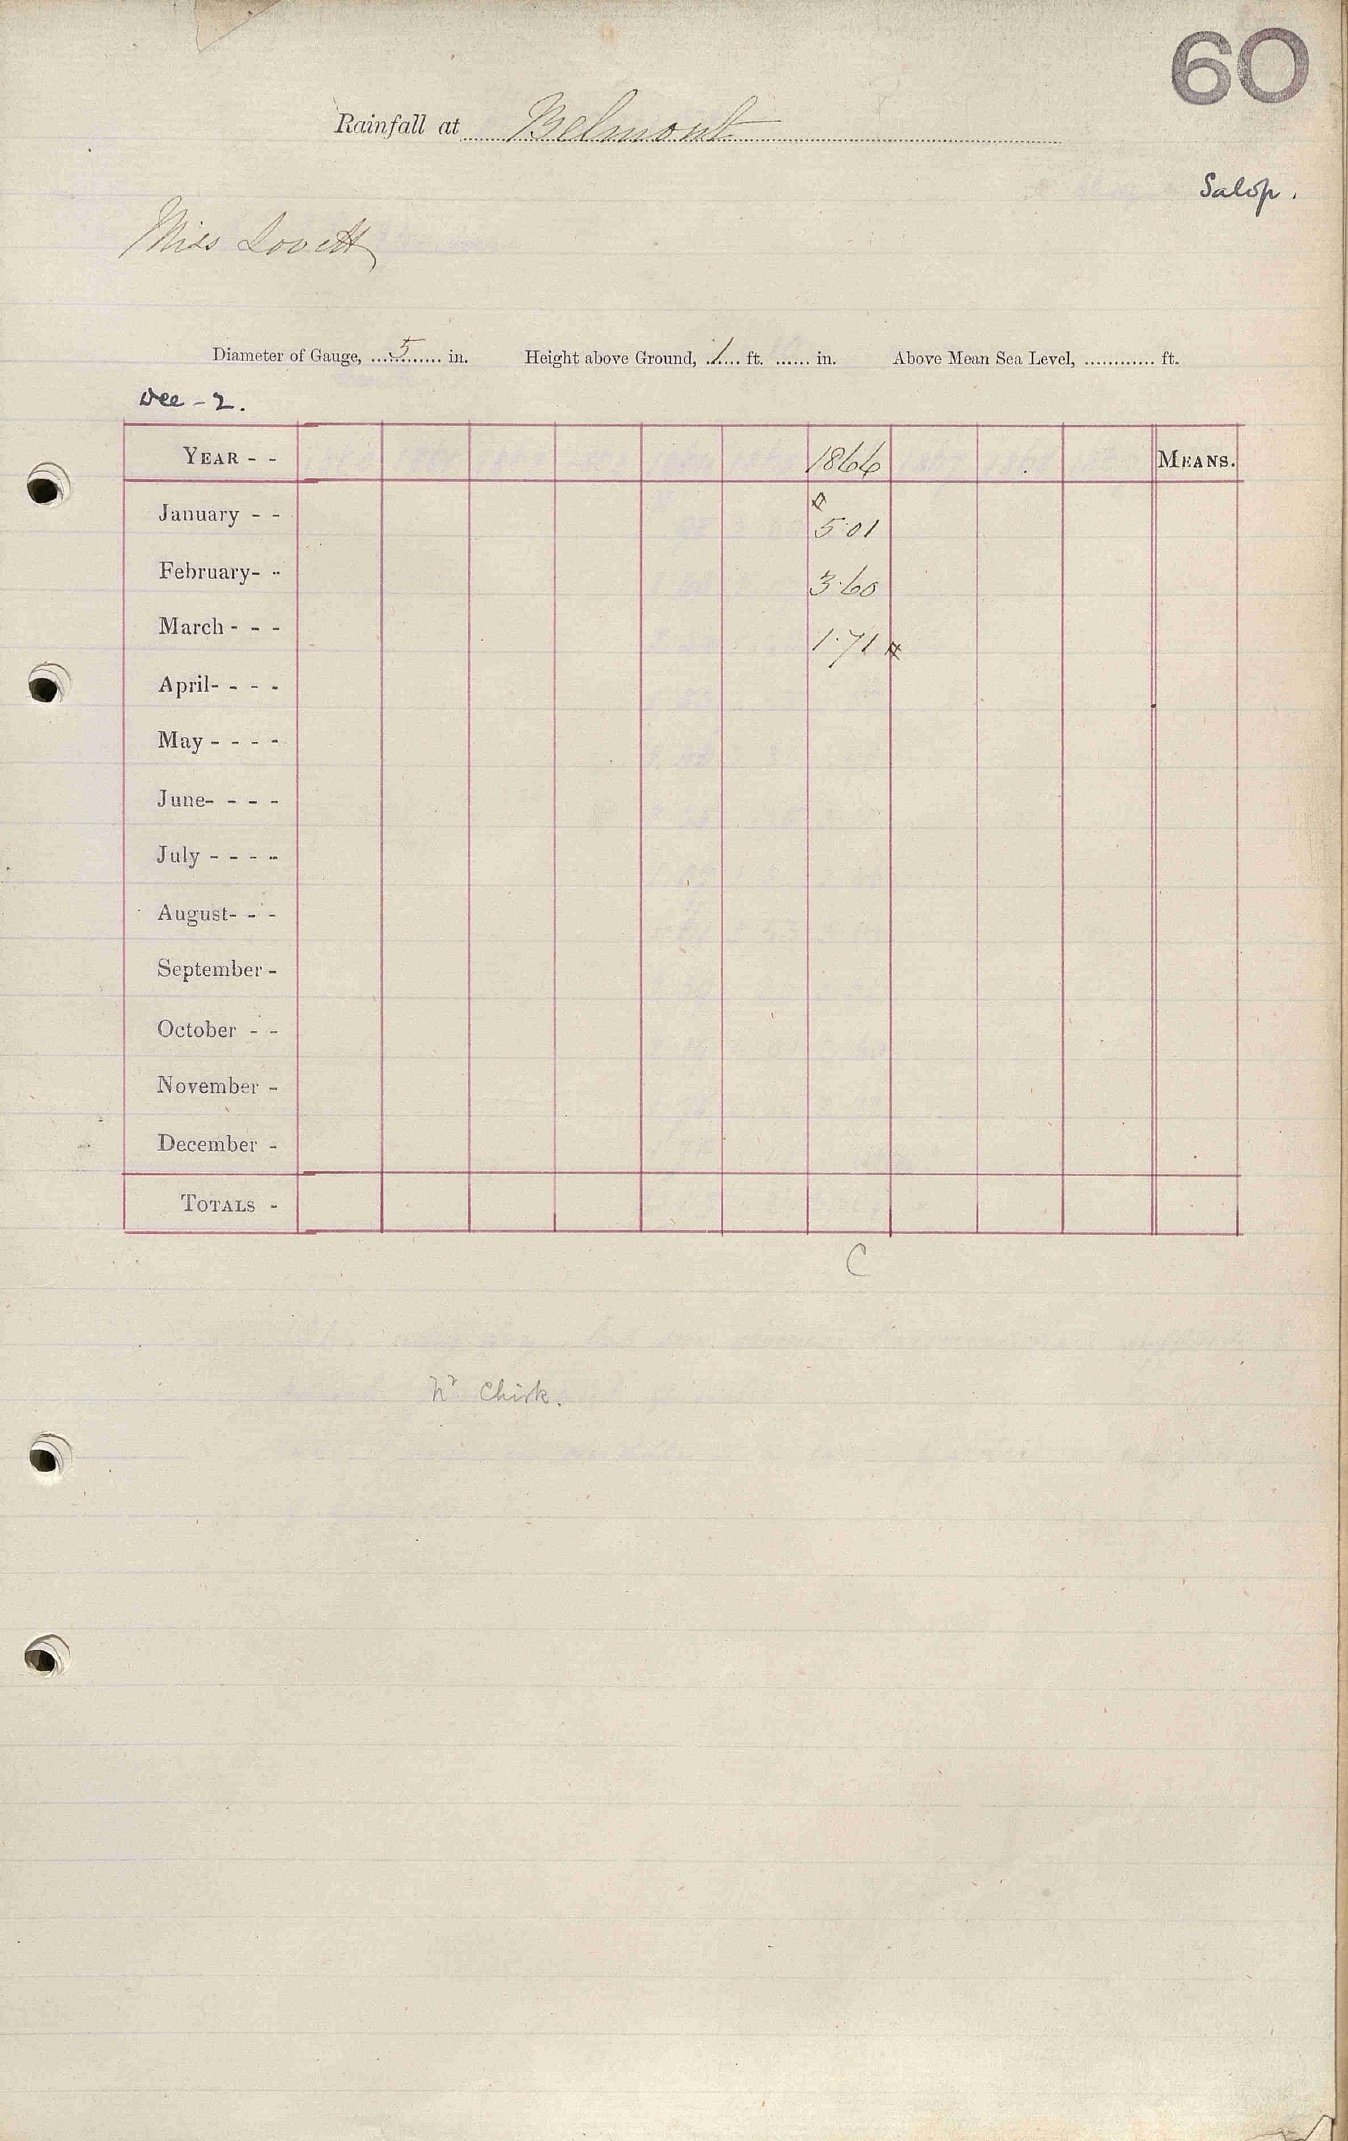 60
Rainfall at Belmont
Salop.
Miss Lovett
Diameter of Gauge, 5 in. Height above Ground, 1 ft. in. Above Mean Sea Level, ft.
Dee - 2.
YEAR - - 1866 MEANS.
January - - 5.01
February - - 3.60
March - - - 1.71
April - - - -
May - - - -
June - - - -
July - - - -
August - - -
September -
October - -
November -
December -
TOTALS -
C
Nr Chirk.